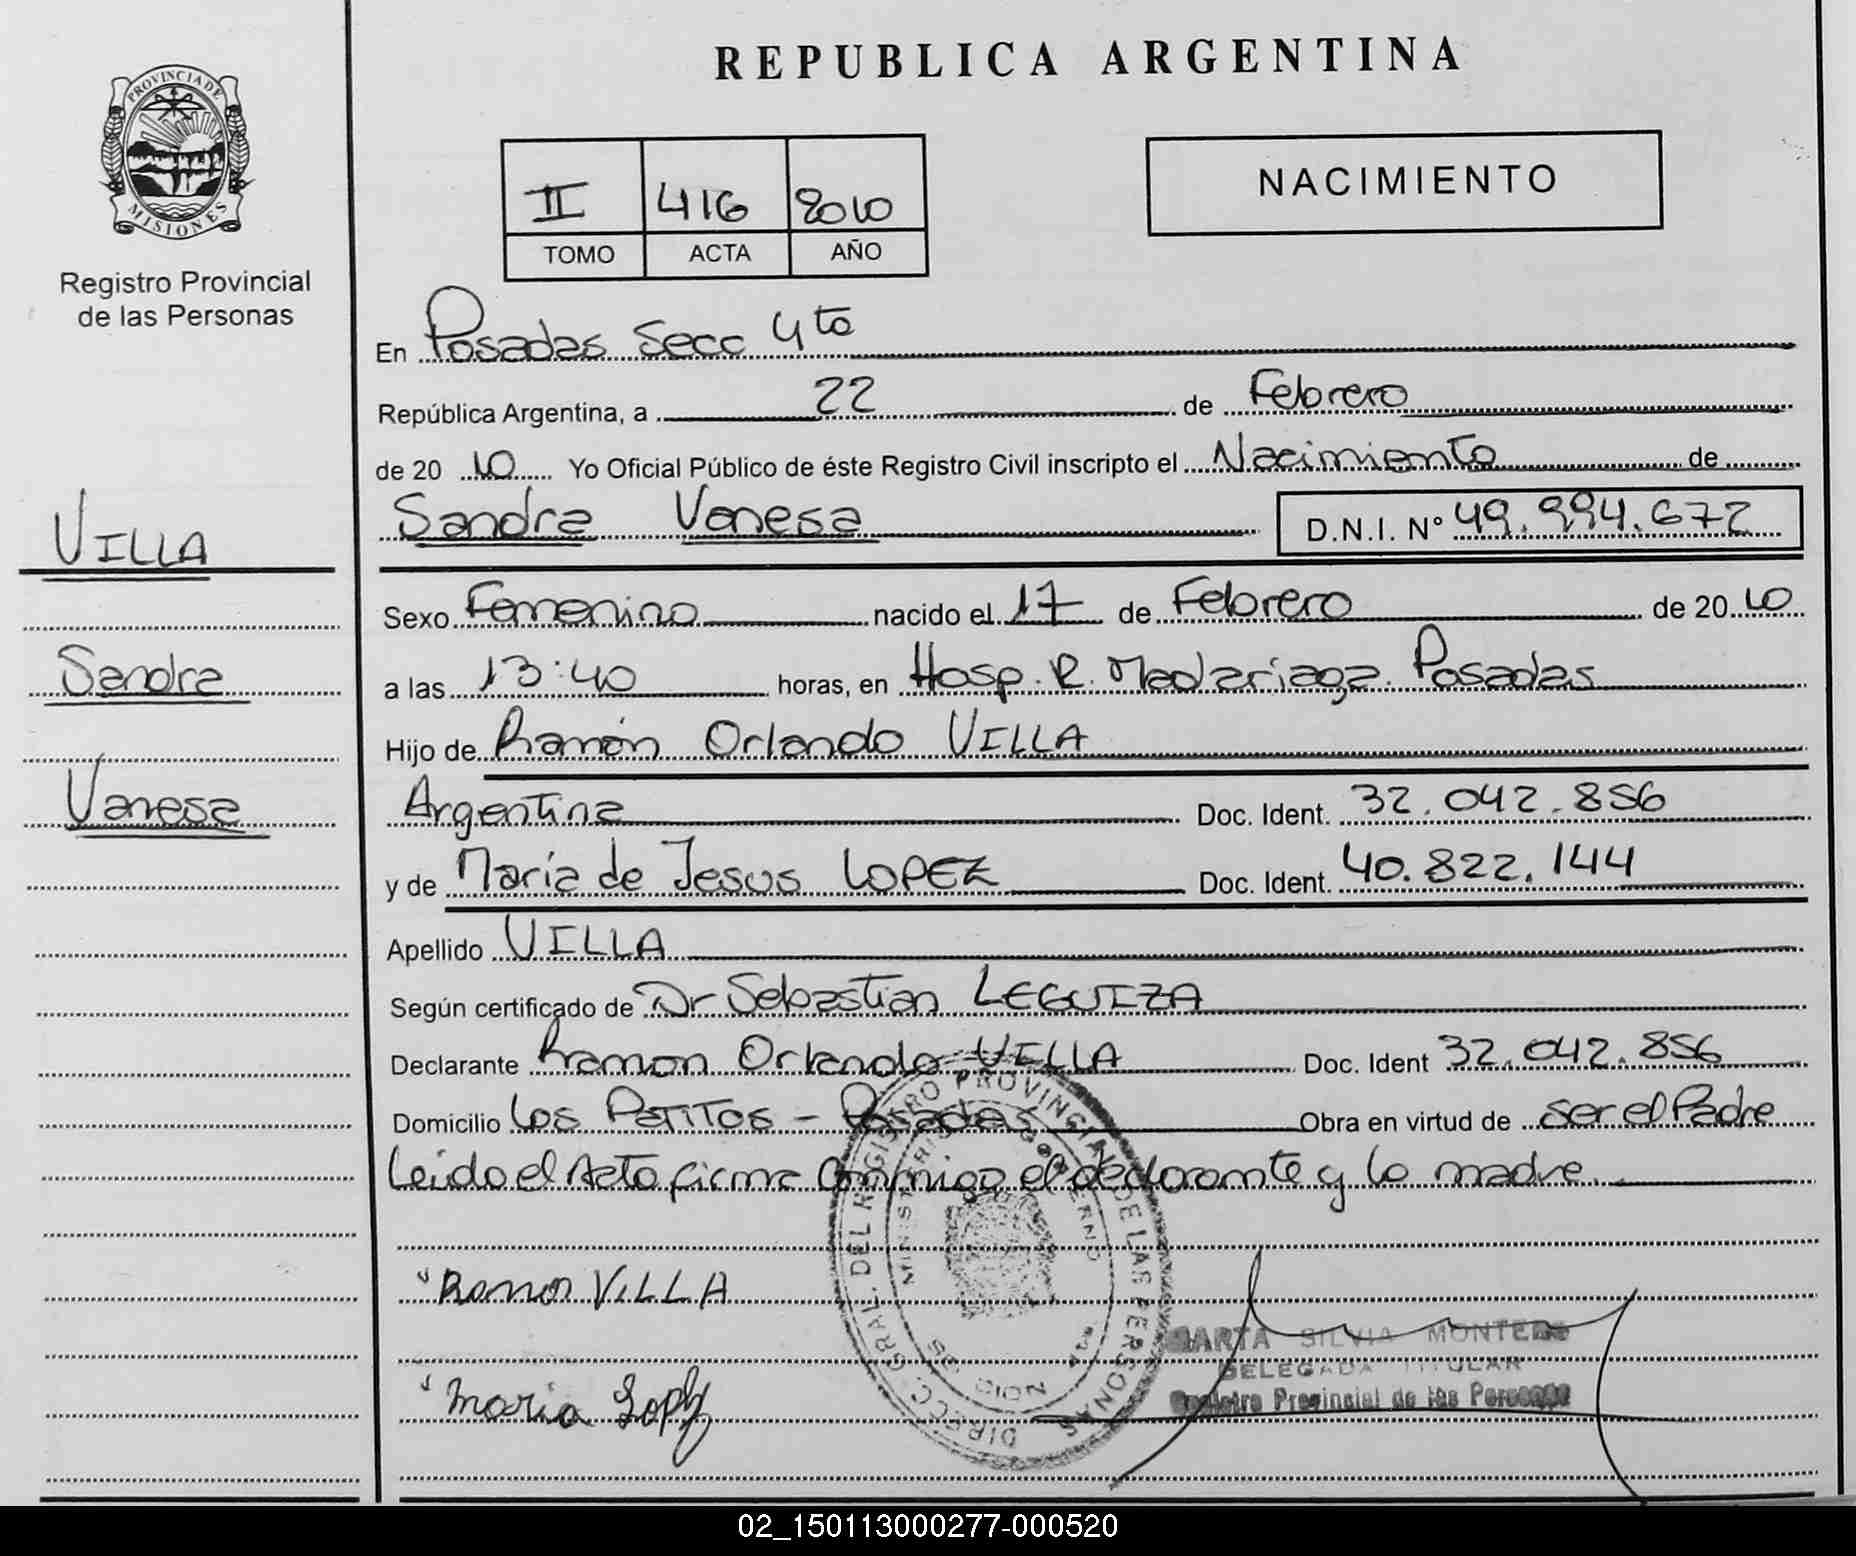 REPUBLICA ARGENTINA
PROVINCIA DE
MISIONES
Registro Provincial
de las Personas
II 416 2010
TOMO ACTA AÑO
NACIMIENTO
En Posadas Secc 4ta
República Argentina, a 22 de Febrero
de 20 10 Yo Oficial Público de éste Registro Civil inscripto el Nacimiento de
Sandra Vanesa D.N.I. N° 49.994.672
VILLA
Sandra
Vanesa
Sexo Femenino nacido el 17 de Febrero de 20 10
a las 13:40 horas, en Hosp. R. Madariaga. Posadas
Hijo de Ramón Orlando VILLA
Argentina Doc. Ident. 32.042.856
y de María de Jesus LOPEZ Doc. Ident. 40.822.144
Apellido VILLA
Según certificado de Dr Sebastian LEGUIZA
Declarante Ramon Orlando VILLA Doc. Ident 32.042.856
Domicilio Los Patitos - Posadas Obra en virtud de ser el Padre
Leido el Acta firma conmigo el declarante y la madre.
DIRECC. GRAL. DEL REGISTRO PROVINCIAL DE LAS PERSONAS
Ramon VILLA
Maria Lopez
MARTA SILVIA MONTERO
DELEGADA TITULAR
Registro Provincial de las Personas
02_150113000277-000520